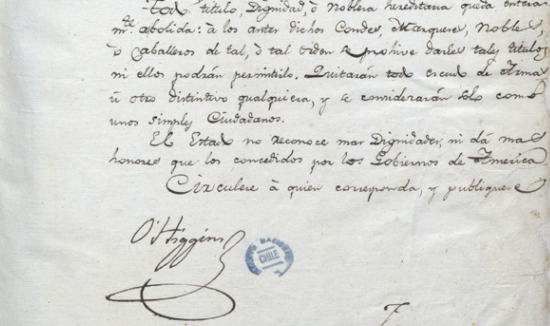 Todo titulo, Dignidad, ó Nobleza hereditaria queda entera
mte. abolida: à los antes dichos Condes, Marqueses, Nobles,
ò Caballeros de tal, ò tal orden se prohive darles tales titulos
ni ellos podrán permitirlo. Quitarán todo escudo de Armas
ú otro distintivo qualquiera, y se considerarán solo como
unos simples Ciudadanos.
El Estado no reconoce mas Dignidades, ni dá mas
honores que los concedidos por los Gobiernos de America
Circulese à quien corresponda, y publiquese
O'Higgins
ARCHIVO NACIONAL
CHILE